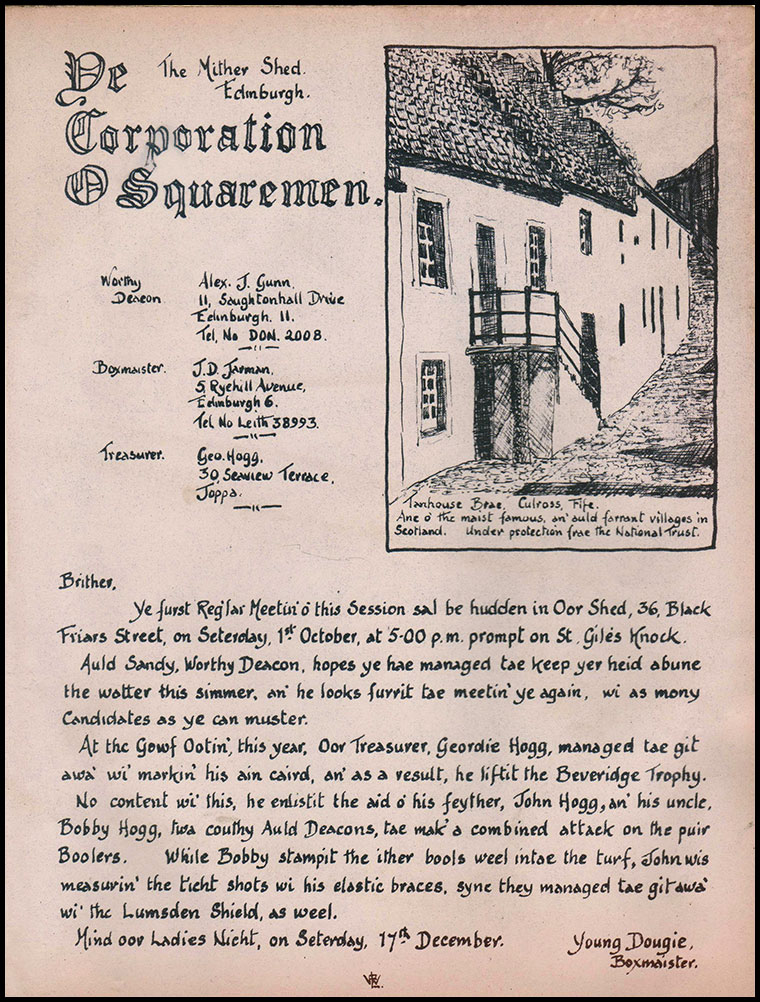 Ye
The Mither Shed.
Edinburgh.
Corporation
O Squaremen.
Worthy
Deacon
Alex. J. Gunn,
11, Saughtonhall Drive
Edinburgh. 11.
Tel. No DON. 2008.
Boxmaister.
J.D. Jarman,
5, Ryehill Avenue,
Edinburgh 6.
Tel. No Leith 38993.
Treasurer.
Geo. Hogg,
30, Seaview Terrace,
Joppa.
Tanhouse Brae, Culross, Fife.
Ane o' the maist famous, an' auld farrant villages in
Scotland. Under protection frae the National Trust.
Brither,
Ye furst Reg'lar Meetin' o' this Session sal be hudden in Oor Shed, 36, Black
Friars Street, on Seterday, 1st October, at 5-00 p.m. prompt on St. Giles Knock.
Auld Sandy, Worthy Deacon, hopes ye hae managed tae keep yer heid abune
the watter this simmer, an' he looks furrit tae meetin' ye again, wi as mony
Candidates as ye can muster.
At the Gowf Ootin', this year, Oor Treasurer, Geordie Hogg, managed tae git
awa' wi' markin' his ain caird, an' as a result, he liftit the Beveridge Trophy.
No content wi' this, he enlistit the aid o' his feyther, John Hogg, an' his uncle,
Bobby Hogg, twa couthy Auld Deacons, tae mak' a combined attack on the puir
Boolers. While Bobby stampit the ither bools weel intae the turf, John wis
measurin' the ticht shots wi his elastic braces, syne they managed tae git awa'
wi' the Lumsden Shield, as weel.
Mind oor Ladies Nicht, on Seterday, 17th December.
Young Dougie,
Boxmaister.